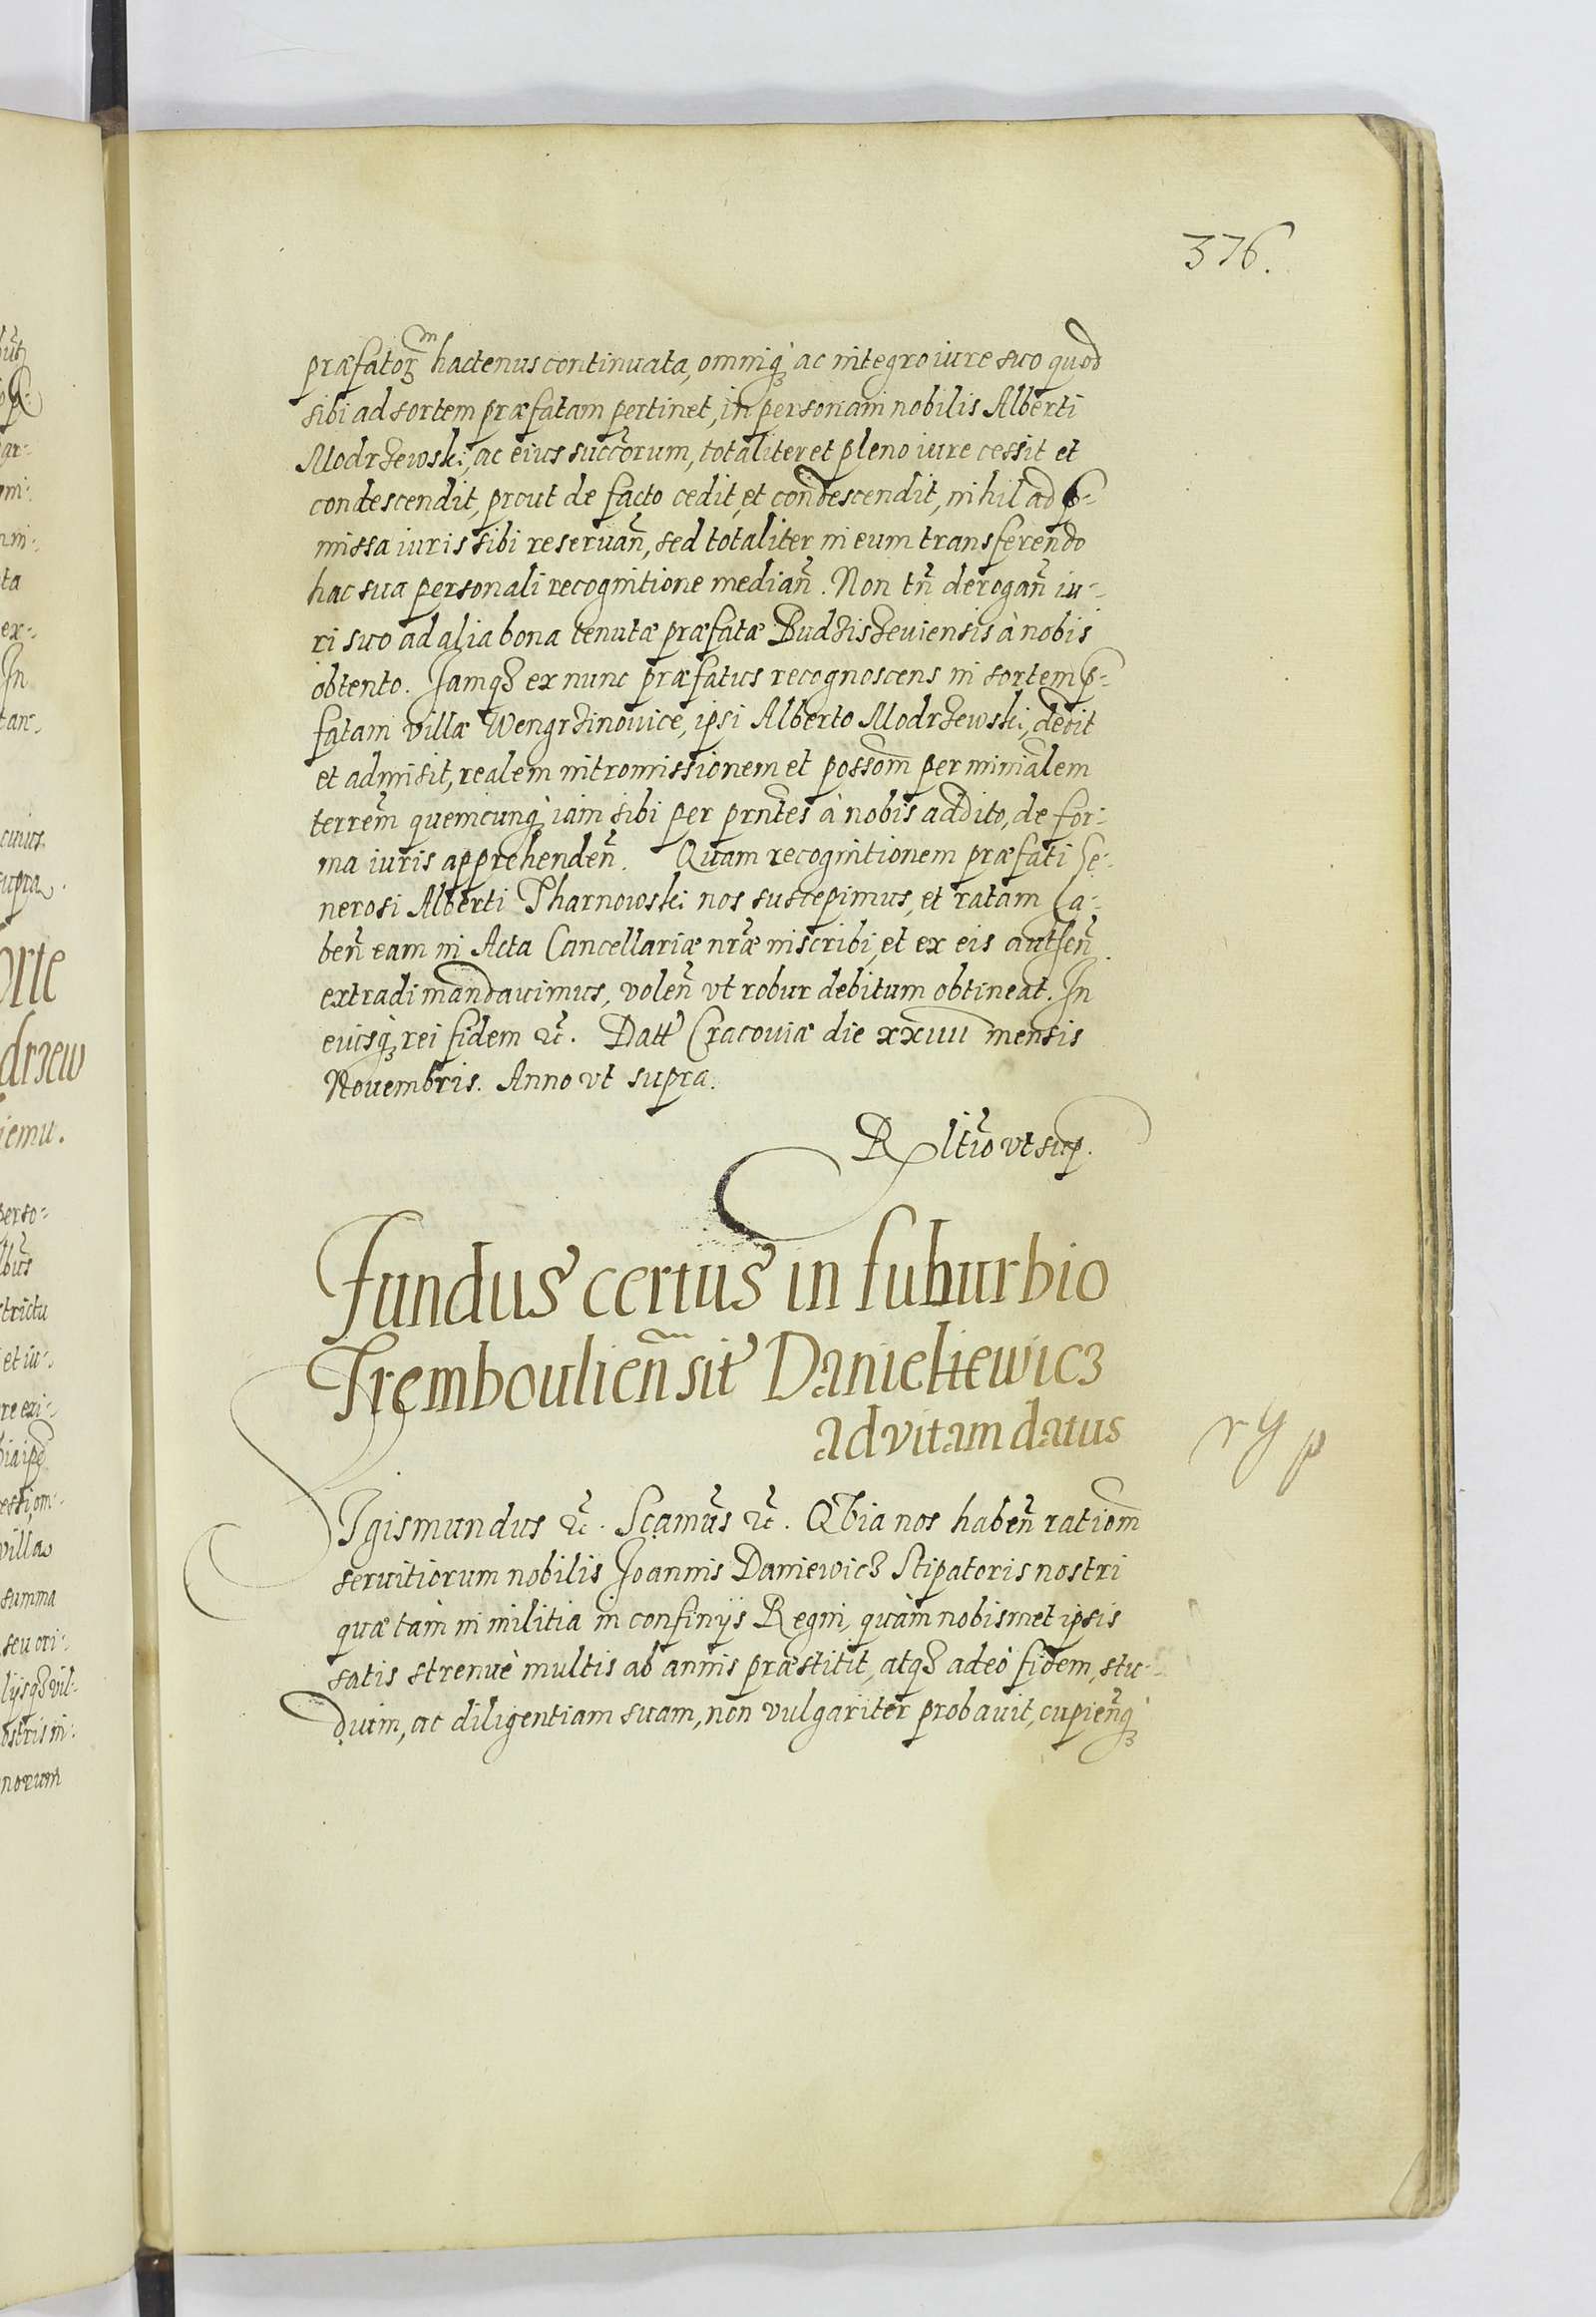 376.
præfatorꝫ hactenus continuata, omniqꝫ ac integro iure suo quod
sibi ad sortem præfatam pertinet, in personam nobilis Alberti
Modrzewski, ac eius succorum, totaliter et pleno iure cessit et
condescendit, prout de facto cedit, et condescendit, nihil ad p-
missa iuris sibi reseruañ, sed totaliter in eum transferendo
hac sua personali recognitione mediañ. Non tñ derogañ iu-
ri suo ad alia bona tenutæ præfatæ Budzisseuiensis à nobis
obtento. Iamqꝫ ex nunc præfatus recognoscens in sortem p-
fatam villæ Wengrzinouice, ipsi Alberto Modrzewski, dedit
et admisit, realem intromissionem et possom̃ per minialem
terrem̃ quemcunqꝫ iam sibi per prñtes à nobis addito, de for-
ma iuris apprehendeñ. Quam recognitionem præfati Ge-
nerosi Alberti Tharnowski nos suscepimus, et ratam ha-
beñ eam in Acta Cancellariæ nr̃æ inscribi, et ex eis autheñ
extradi mandauimus, voleñ vt robur debitum obtineat. In
cuiusqꝫ rei fidem ꝛc̃. Datt̃ Cracouiæ die xxiiii mensis
Nouembris. Anno vt supra.
R ltĩo vt sup.
Fundus certus in suburbio
Tremboulieñ sit Danieliewicz
ad vitam datus
Sigismundus ꝛc̃. Scam̃us ꝛc̃. Quia nos habeñ ratiom̃
seruitiorum nobilis Joannis Daniewicz Stipatoris nostri
quæ tàm in militia in confinijs Regni, quàm nobismet ipsis
satis strenuè multis ab annis præstitit, atqꝫ adeò fidem, stu-
dium, ac diligentiam suam, non vulgariter probauit, cupieñqꝫ